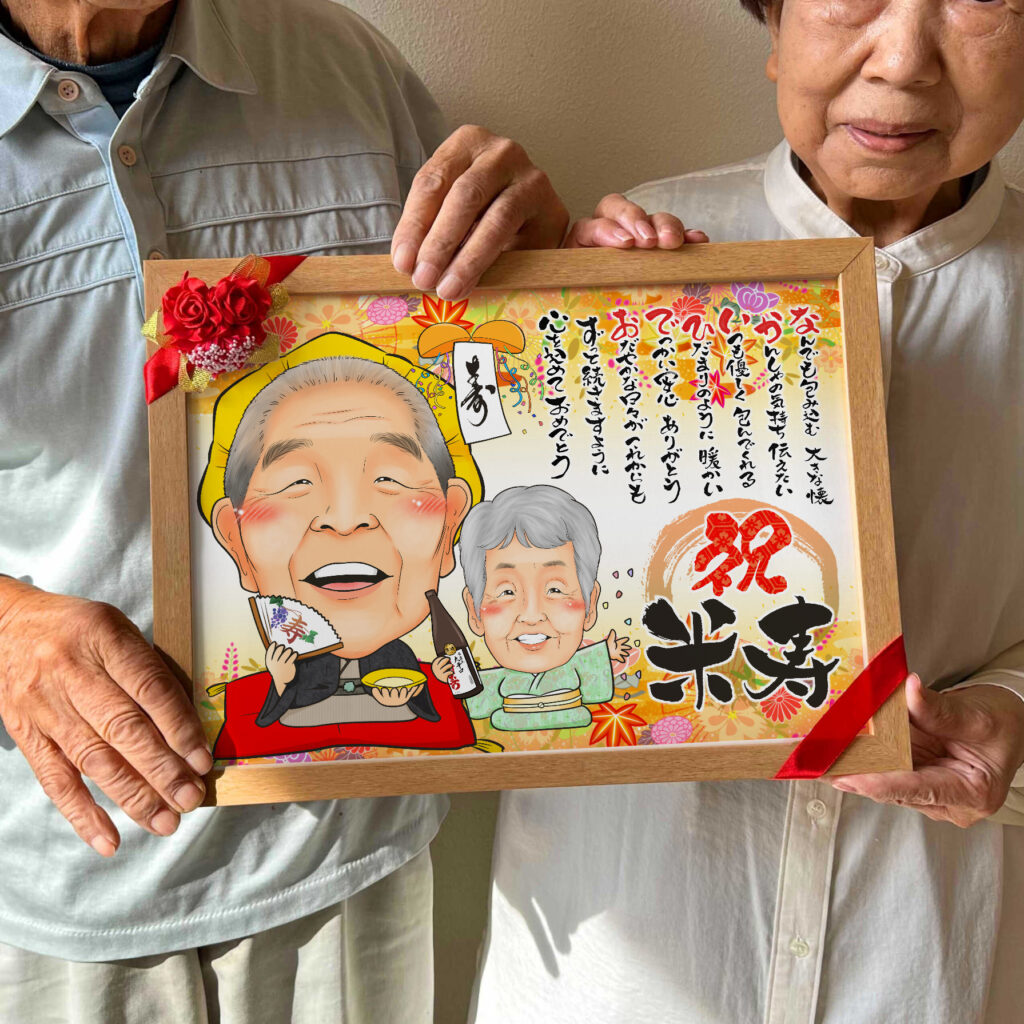 なんでも包み込む 大きな懐
かんしゃの気持ち 伝えたい
いつも優しく 包んでくれる
ひだまりのように 暖かい
でっかい安心 ありがとう
おだやかな日々が これからも
ずっと続きますように
心を込めて おめでとう
寿
祝
米寿
寿